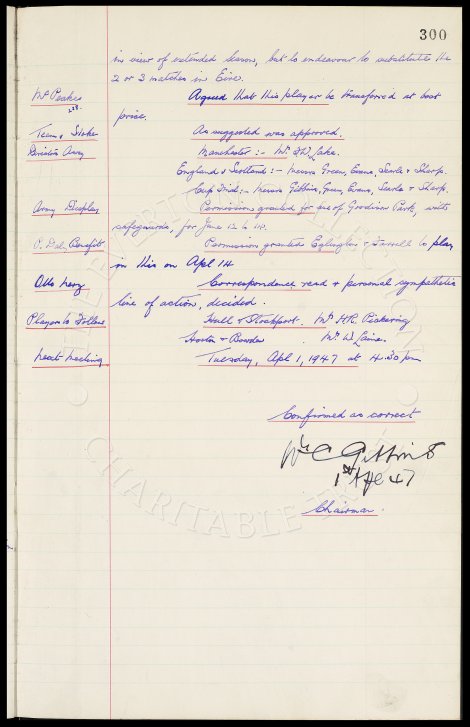 300
in view of extended season, but to endeavour to substitute the
2 or 3 matches in Eire.
Mr Peakes Agreed that this player be transferred at best
228.
price.
Team v Stoke As suggested was approved.
Directors Away Manchester :- Mr. F.W. Lake.
England v Scotland :- Messrs Green, Evans, Searle & Sharp.
Cup Final :- Messrs Gibbins, Green, Evans, Searle & Sharp.
Army Display Permission granted for use of Goodison Park, with
safeguards, for June 12 to 14.
P. Daly Benefit Permission granted Eglington & Farrell to play
in this on Apl 14
Correspondence read & personal sympathetic
line of action, decided.
Players to Follow Hull v Stockport. Mr H.R. Pickering
Mr W.
Next Meeting Tuesday, Apl 1, 1947 at 4.30pm
Confirmed as correct
Wm C Gibbins
1st Apl 47
Chairman.
CHARITABLE